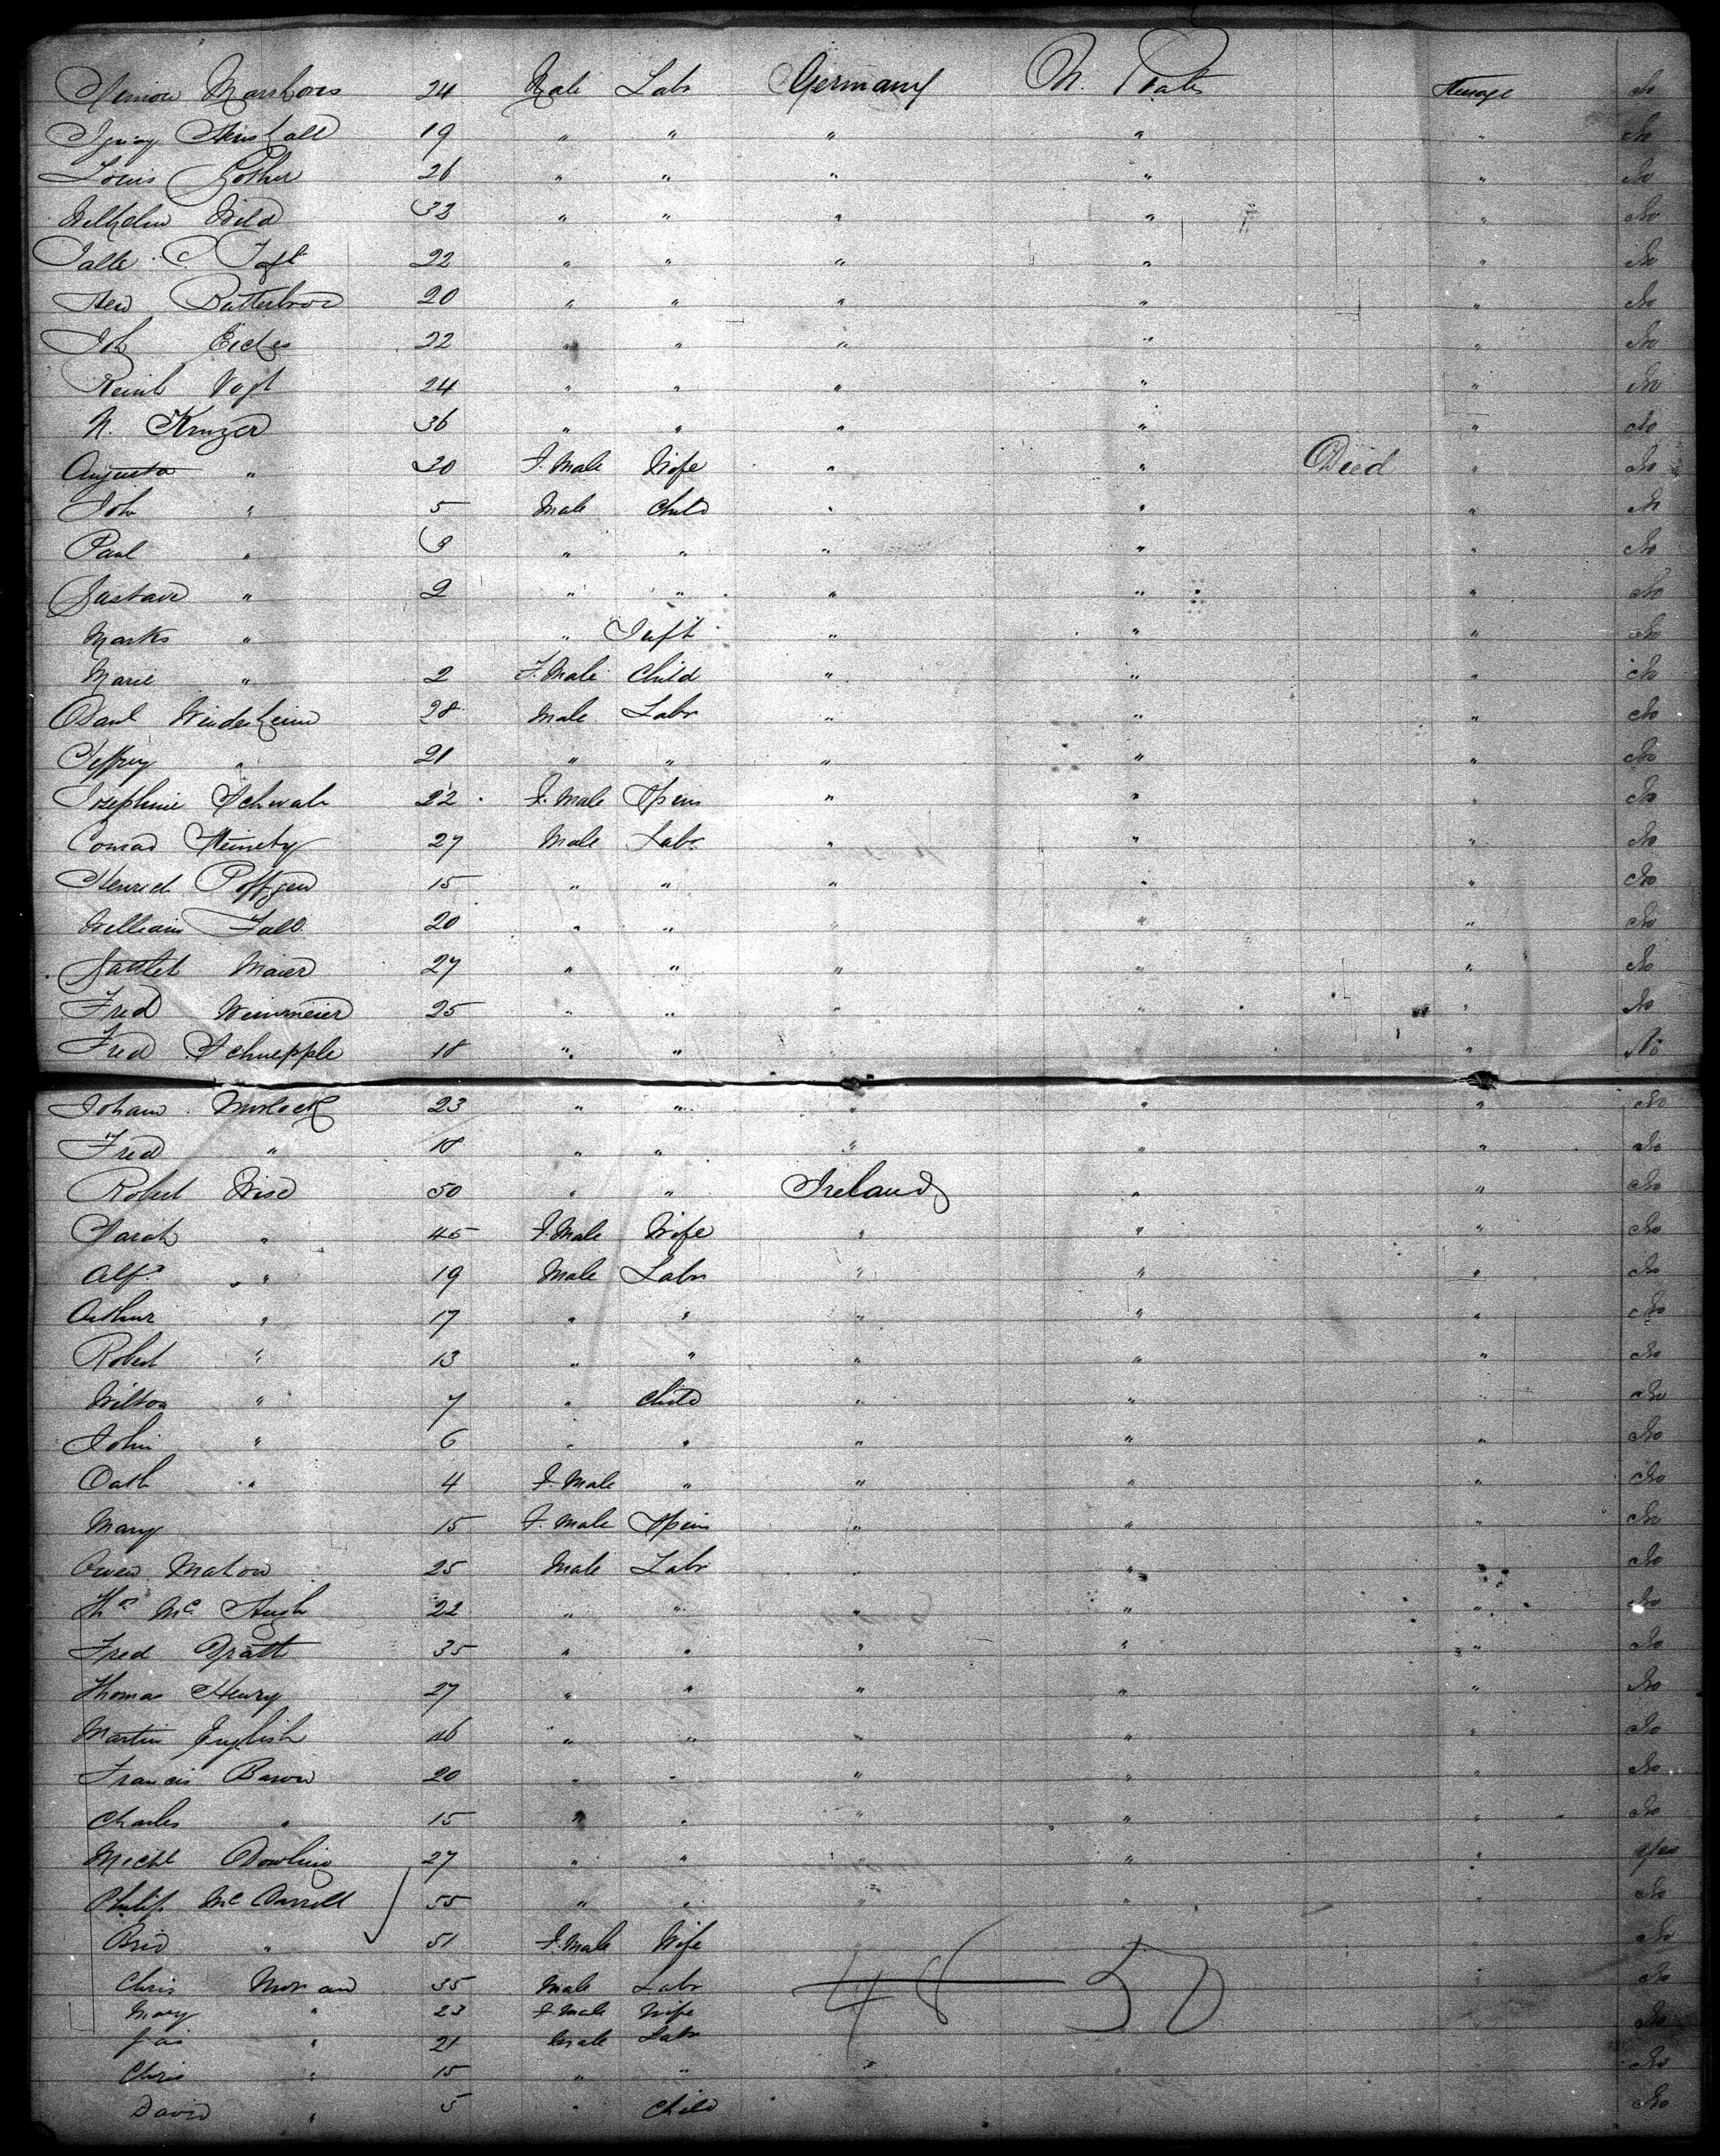 24 Male Labr Germany U. States Steerage No
19 " " " " " No
Louis 26 " " " " " No
Wilhelm Wild 33 " " " " " No
22 " " " " " No
20 " " " " " No
Joh 22 " " " " " No
Reinh Vogt 24 " " " " " No
N. Kruger 36 " " " " " No
Augusta " 30 F. Male Wife " " Died " No
Joh " 5 Male Child " " " No
Paul " 3 " " " " " No
Gustave " 2 " " " " " No
" " Inft " " " No
Marie " 2 F. Male Child " " " No
Paul Windesheim 28 Male Labr " " " No
Jeffrey " 21 " " " " " No
Josephine Schwab 22 F. Male Spins " " " No
Conrad 27 Male Labr " " " No
15 " " " " " No
William 20 " " " " " No
Maier 27 " " " " " No
Fred Weinmeier 25 " " " " " No
Fred Schnepple 18 " " " " " No
Johann Morlock 23 " " " " " No
Fred " 18 " " " " " No
Robert Wise 50 " " Ireland " " No
Sarah " 45 F. Male Wife " " " No
Alfd " 19 Male Labr " " " No
Arthur " 17 " " " " " No
Robert " 13 " " " " " No
Wilton " 7 " Child " " " No
John " 6 " " " " " No
Cath " 4 F. Male " " " " No
Mary 15 F. Male Spins " " " No
Owen Mahon 25 Male Labr " " " No
Thos Mc Hugh 22 " " " " " No
Fred Pratt 35 " " " " " No
Thomas Henry 27 " " " " " No
Martin English 46 " " " " " No
Francis Baron 20 " " " " " No
Charles " 15 " " " " " No
Michl Dowling 27 " " " " " Yes
Philip Mc Carroll 55 " " " " " No
Brid " 51 F. Male Wife No
Chris Moran 35 Male Labr 48 50 No
Mary " 23 F. Male Wife No
Jas " 21 Male Labr
Chris " 15 " " " No
David " 5 " Child No